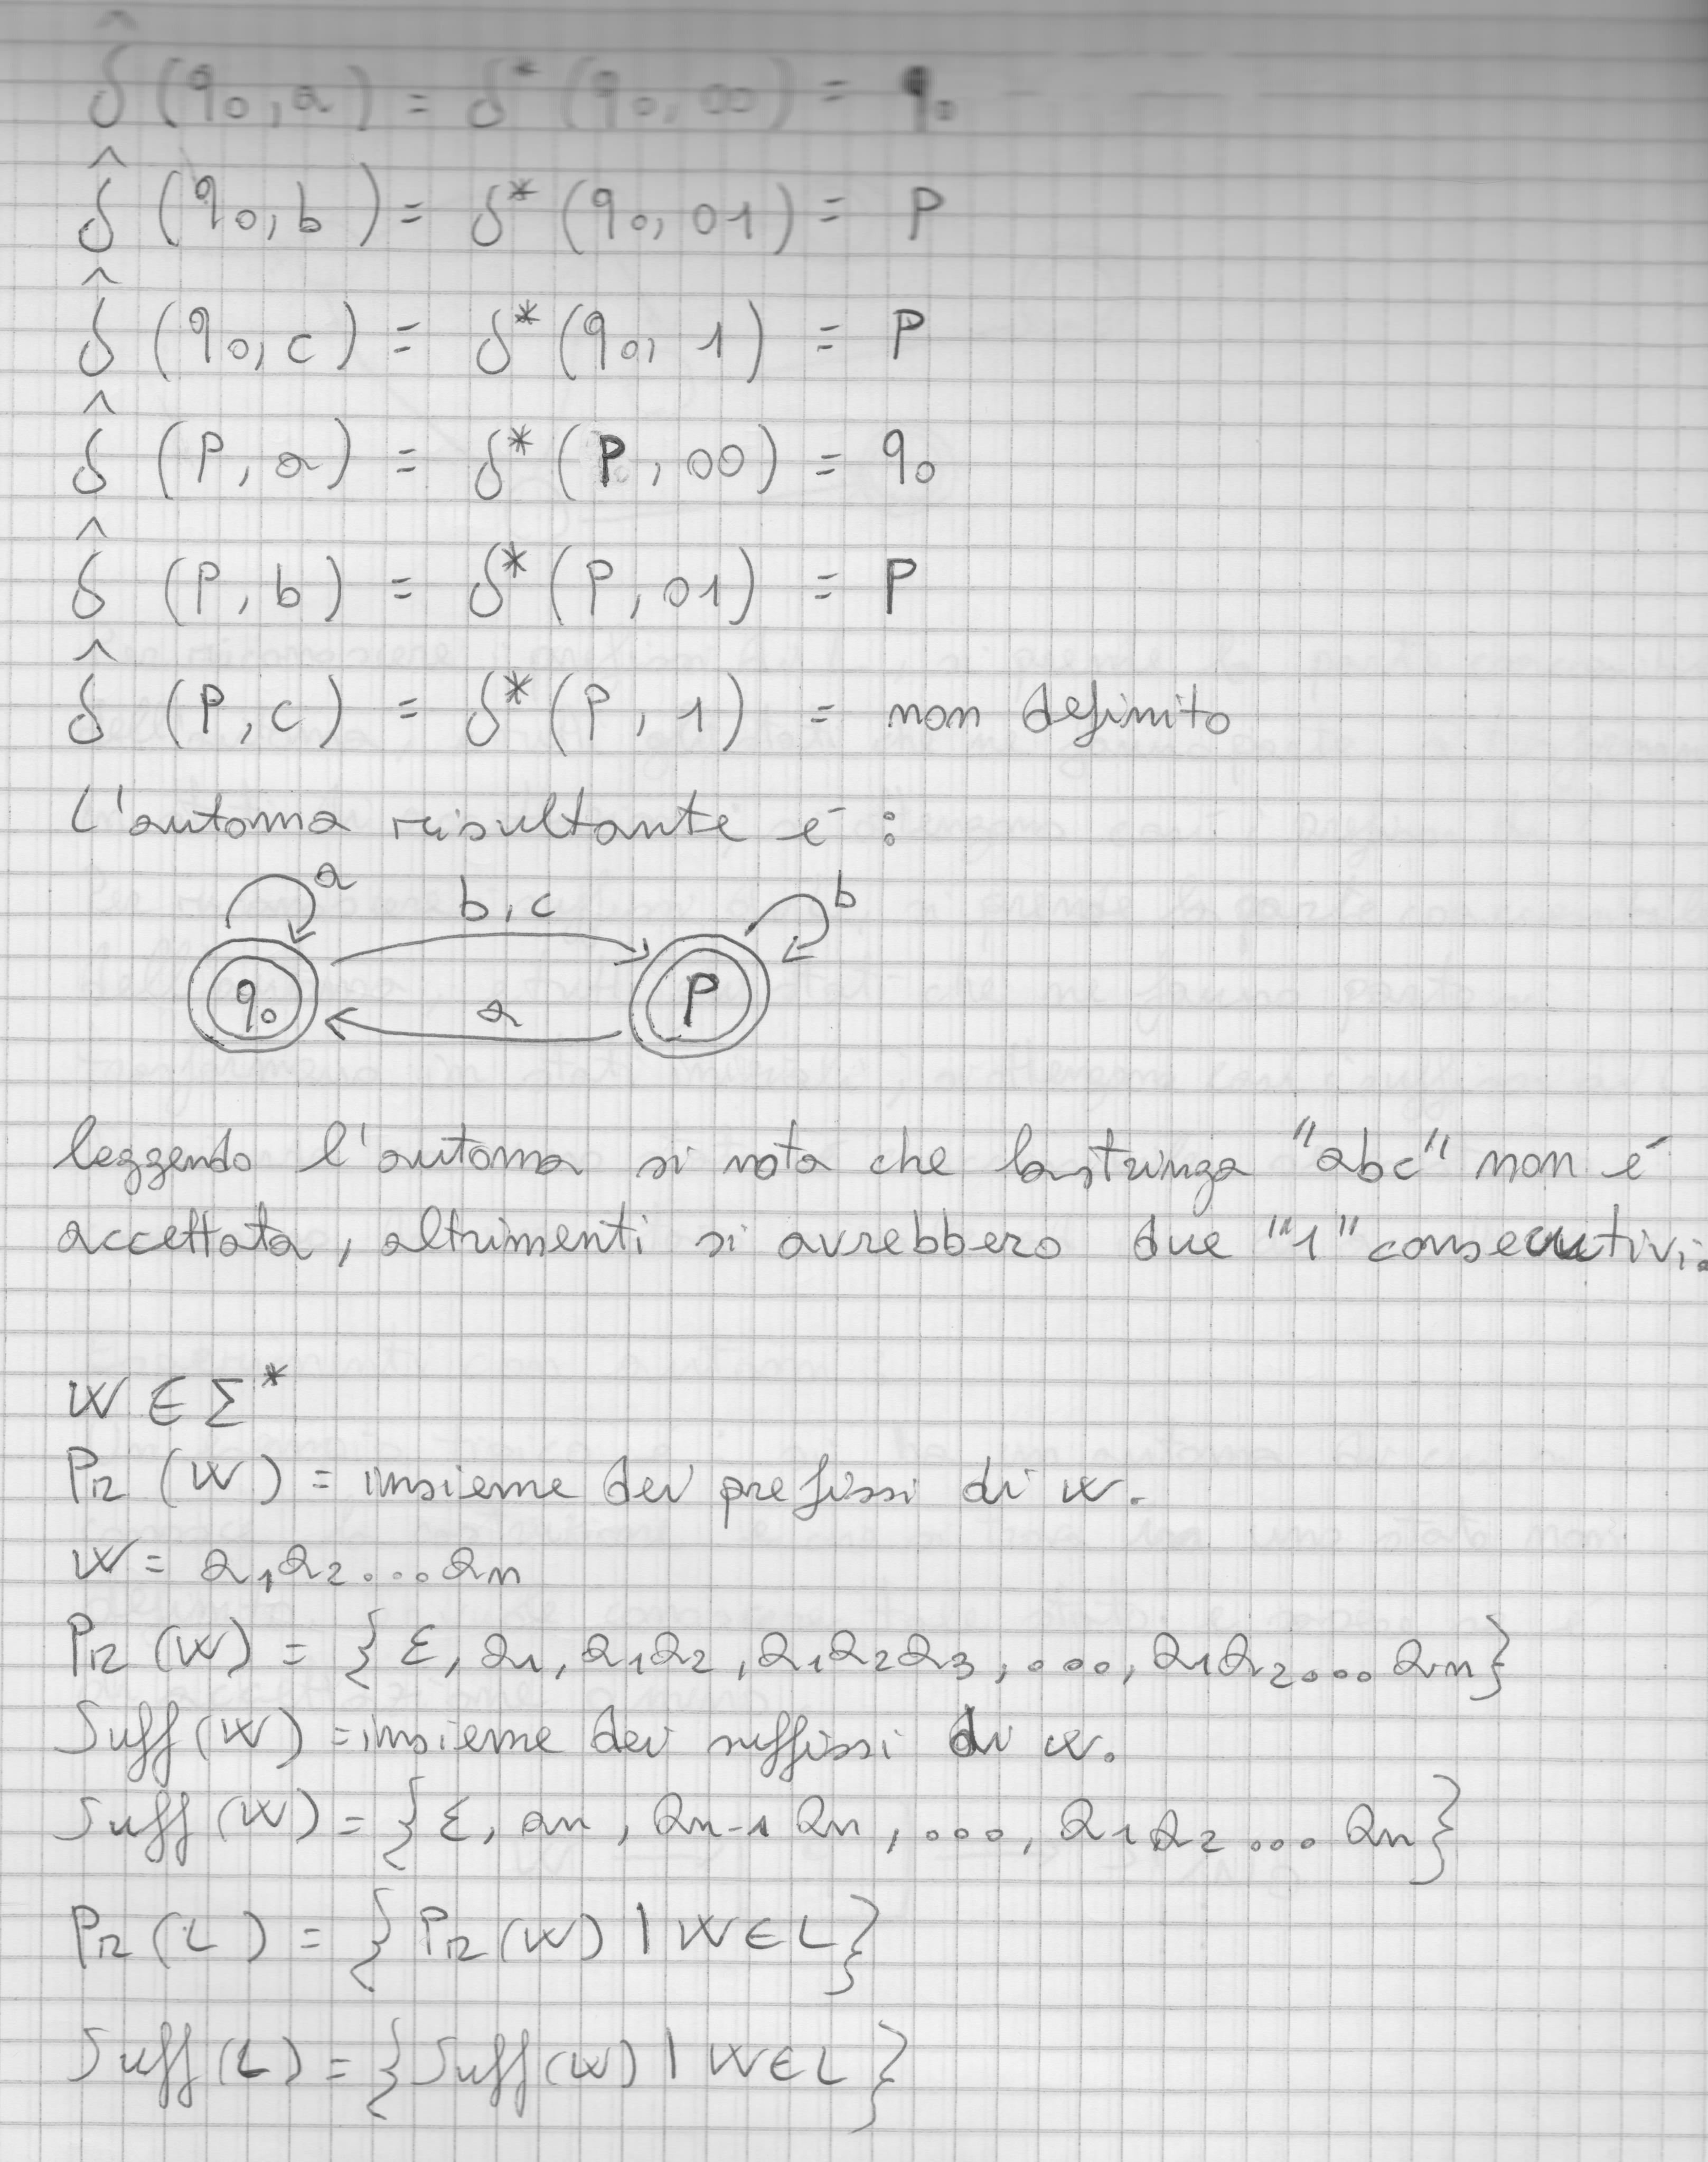 δ̂ (q₀, a) = δ* (q₀, 00) = q₀
δ̂ (q₀, b) = δ* (q₀, 01) = P
δ̂ (q₀, c) = δ* (q₀, 1) = P
δ̂ (P, a) = δ* (P, 00) = q₀
δ̂ (P, b) = δ* (P, 01) = P
δ̂ (P, c) = δ* (P, 1) = non definito
L'automa risultante é :
a
b, c
b
q₀
P
a
leggendo l'automa si nota che la stringa "abc" non é
accettata, altrimenti si avrebbero due "1" consecutivi.
W ∈ Σ*
Pr (W) = insieme dei prefissi di w.
W = a₁a₂...aₙ
Pr (W) = {ε, a₁, a₁a₂, a₁a₂a₃, ..., a₁a₂...aₙ}
Suff (W) = insieme dei suffissi di w.
Suff (W) = {ε, aₙ, aₙ₋₁ aₙ, ..., a₁a₂...aₙ}
Pr (L) = {Pr (W) | W ∈ L}
Suff (L) = {Suff (W) | W ∈ L}